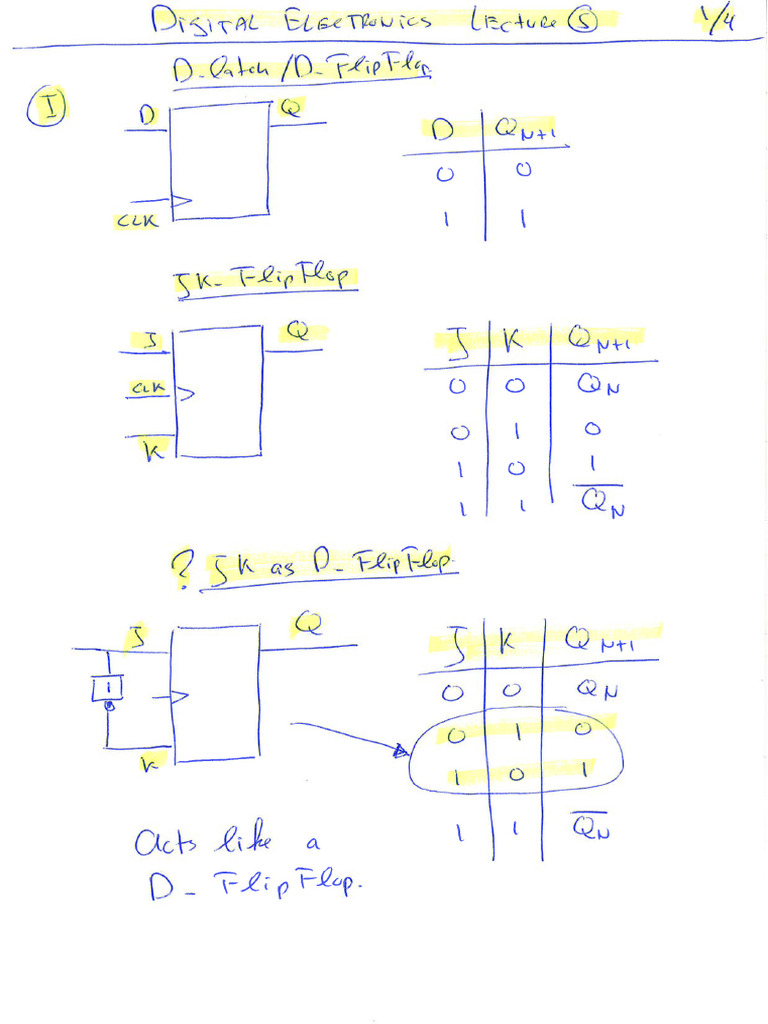 DIGITAL ELECTRONICS LECTURE 5 1/4
D-Latch/D-FlipFlop
I
D Q
CLK
D Q N+1
0 0
1 1
JK-FlipFlop
J Q
CLK
K
J K Q N+1
0 0 Q N
0 1 0
1 0 1
1 1 Q̅ N
? JK as D-FlipFlop.
J Q
1
K
J K Q N+1
0 0 Q N
0 1 0
1 0 1
1 1 Q̅ N
Acts like a
D-FlipFlop.